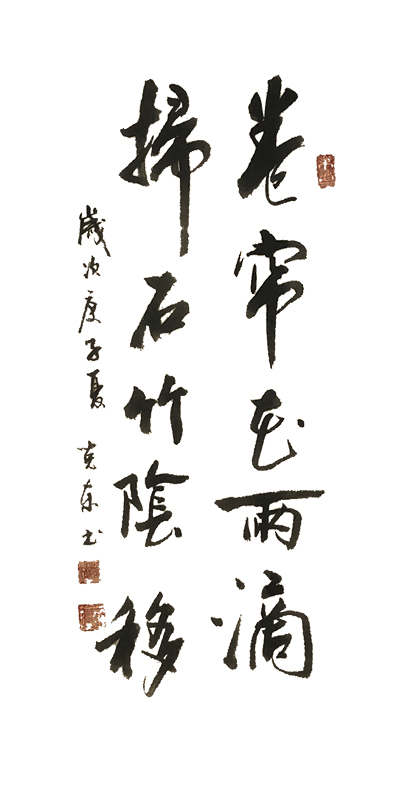 卷帘花雨滴
掃石竹陰移
歲次庚子夏 克东书